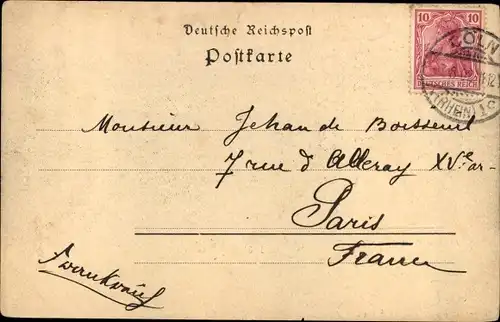 Deutsche Reichspost
Postkarte
10 10
DEUTSCHES REICH
CÖLN
(RHEIN) 1
Monsieur Jehan de Boisseuil
7 rue d'Alleray XVe ar-
Paris
France